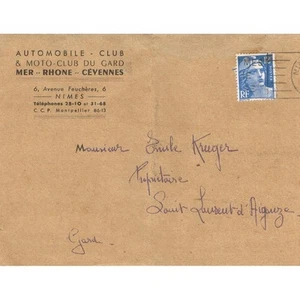 AUTOMOBILE - CLUB
& MOTO-CLUB DU GARD
MER - RHONE - CÉVENNES
6, Avenue Feuchères, 6
NIMES
Téléphones 28-10 et 41-68
C. C. P. Montpellier
RF
Monsieur Emile Krueger
Propriétaire
Saint Laurent d'Aigouze
Gard